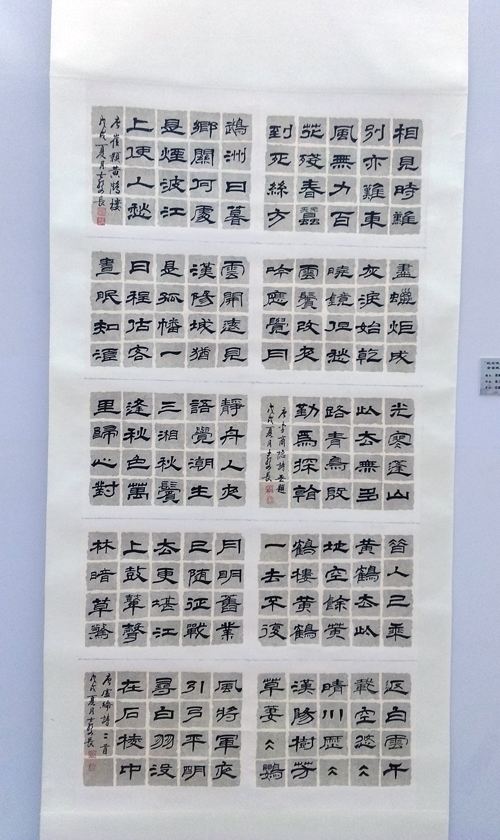 相見時難
別亦難東
風無力百
花殘春蠶
到死絲方
盡蠟炬成
灰淚始乾
曉鏡但愁
雲鬢改夜
吟應覺月
光寒蓬山
此去無多
路青鳥殷
勤爲探翰
唐李商隱詩無題
戊戌夏月長
昔人已乘
黃鶴去此
地空餘黃
鶴樓黃鶴
一去不復
返白雲千
載空悠々
晴川歷々
漢陽樹芳
草萋々鸚
鵡洲日暮
鄉關何處
是煙波江
上使人愁
唐崔顥黃鶴樓
戊戌夏月長
雲開遠見
漢陽城猶
是孤幡一
日程估客
晝眠知浪
靜舟人夜
語覺潮生
三湘秋鬢
逢秋色萬
里歸心對
月明舊業
已隨征戰
去更堪江
上鼓鼙聲
林暗草驚
風將軍夜
引弓平明
尋白羽沒
在石稜中
唐盧綸詩二首
戊戌夏月長